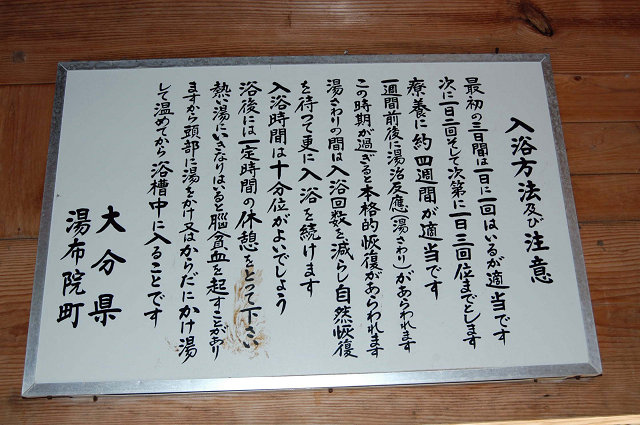 入浴方法及び注意
最初の三日間は一日に一回はいるが適当です
次に一日二回そして次第に一日三回位までとします
療養に約四週間が適当です
一週間前後に湯治反應(湯さわり)があらわれます
この時期が過ぎると本格的恢復があらわれます
湯さわりの間は入浴回数を減らし自然恢復
を待って更に入浴を続けます
入浴時間は十分位がよいでしょう
浴後には一定時間の休憩をとって下さい
熱い湯にいきなりはいると脳貧血を起すことがあり
ますから頭部に湯をかけ又はからだにかけ湯
して温めてから浴槽中に入ることです
大分県
湯布院町